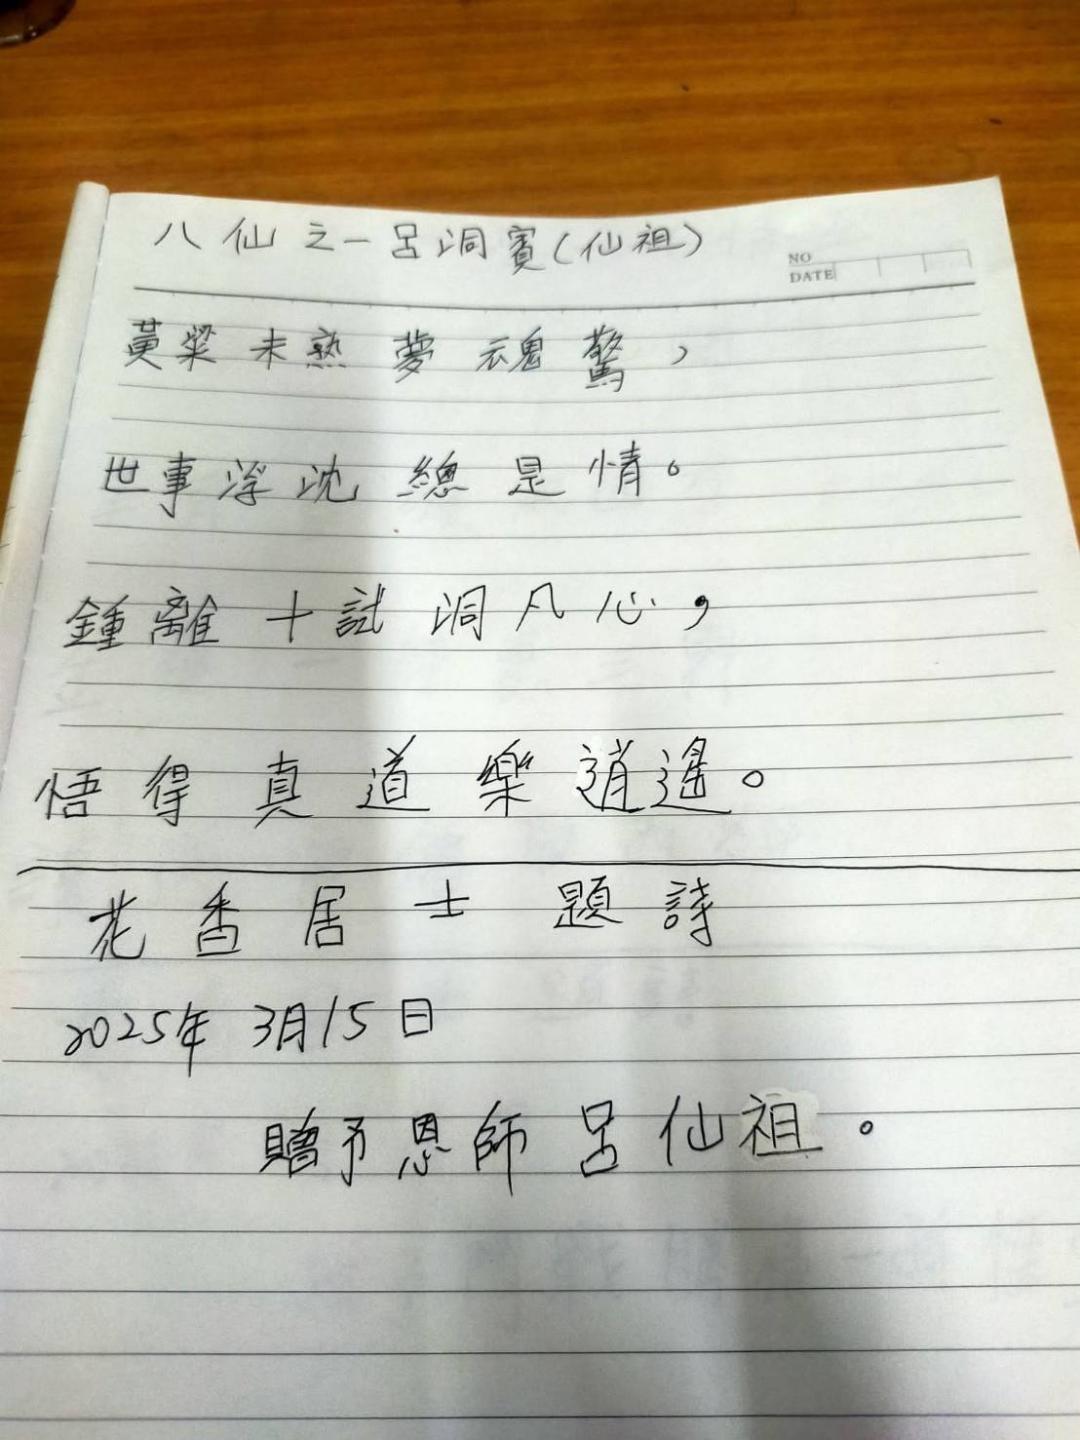 八仙之一呂洞賓(仙祖)
NO
DATE
黃粱未熟夢魂驚,
世事浮沈總是情。
鍾離十試洞凡心,
悟得真道樂逍遙。
花香居士題詩
2025年3月15日
贈予恩師呂仙祖。